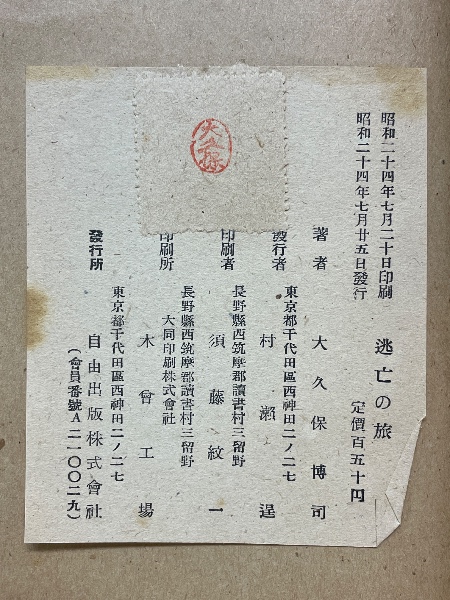 昭和二十四年七月二十日印刷
昭和二十四年七月廿五日發行
逃亡の旅
定價百五十円
著者 大久保博司
發行者 東京都千代田區西神田二ノ二七
村瀨逞
印刷者 長野縣西筑摩郡讀書村三留野
須藤紋一
印刷所 長野縣西筑摩郡讀書村三留野
大同印刷株式會社
木曾工場
發行所 東京都千代田區西神田二ノ二七
自由出版株式會社
(會員番號A二一〇〇二九)
大久保